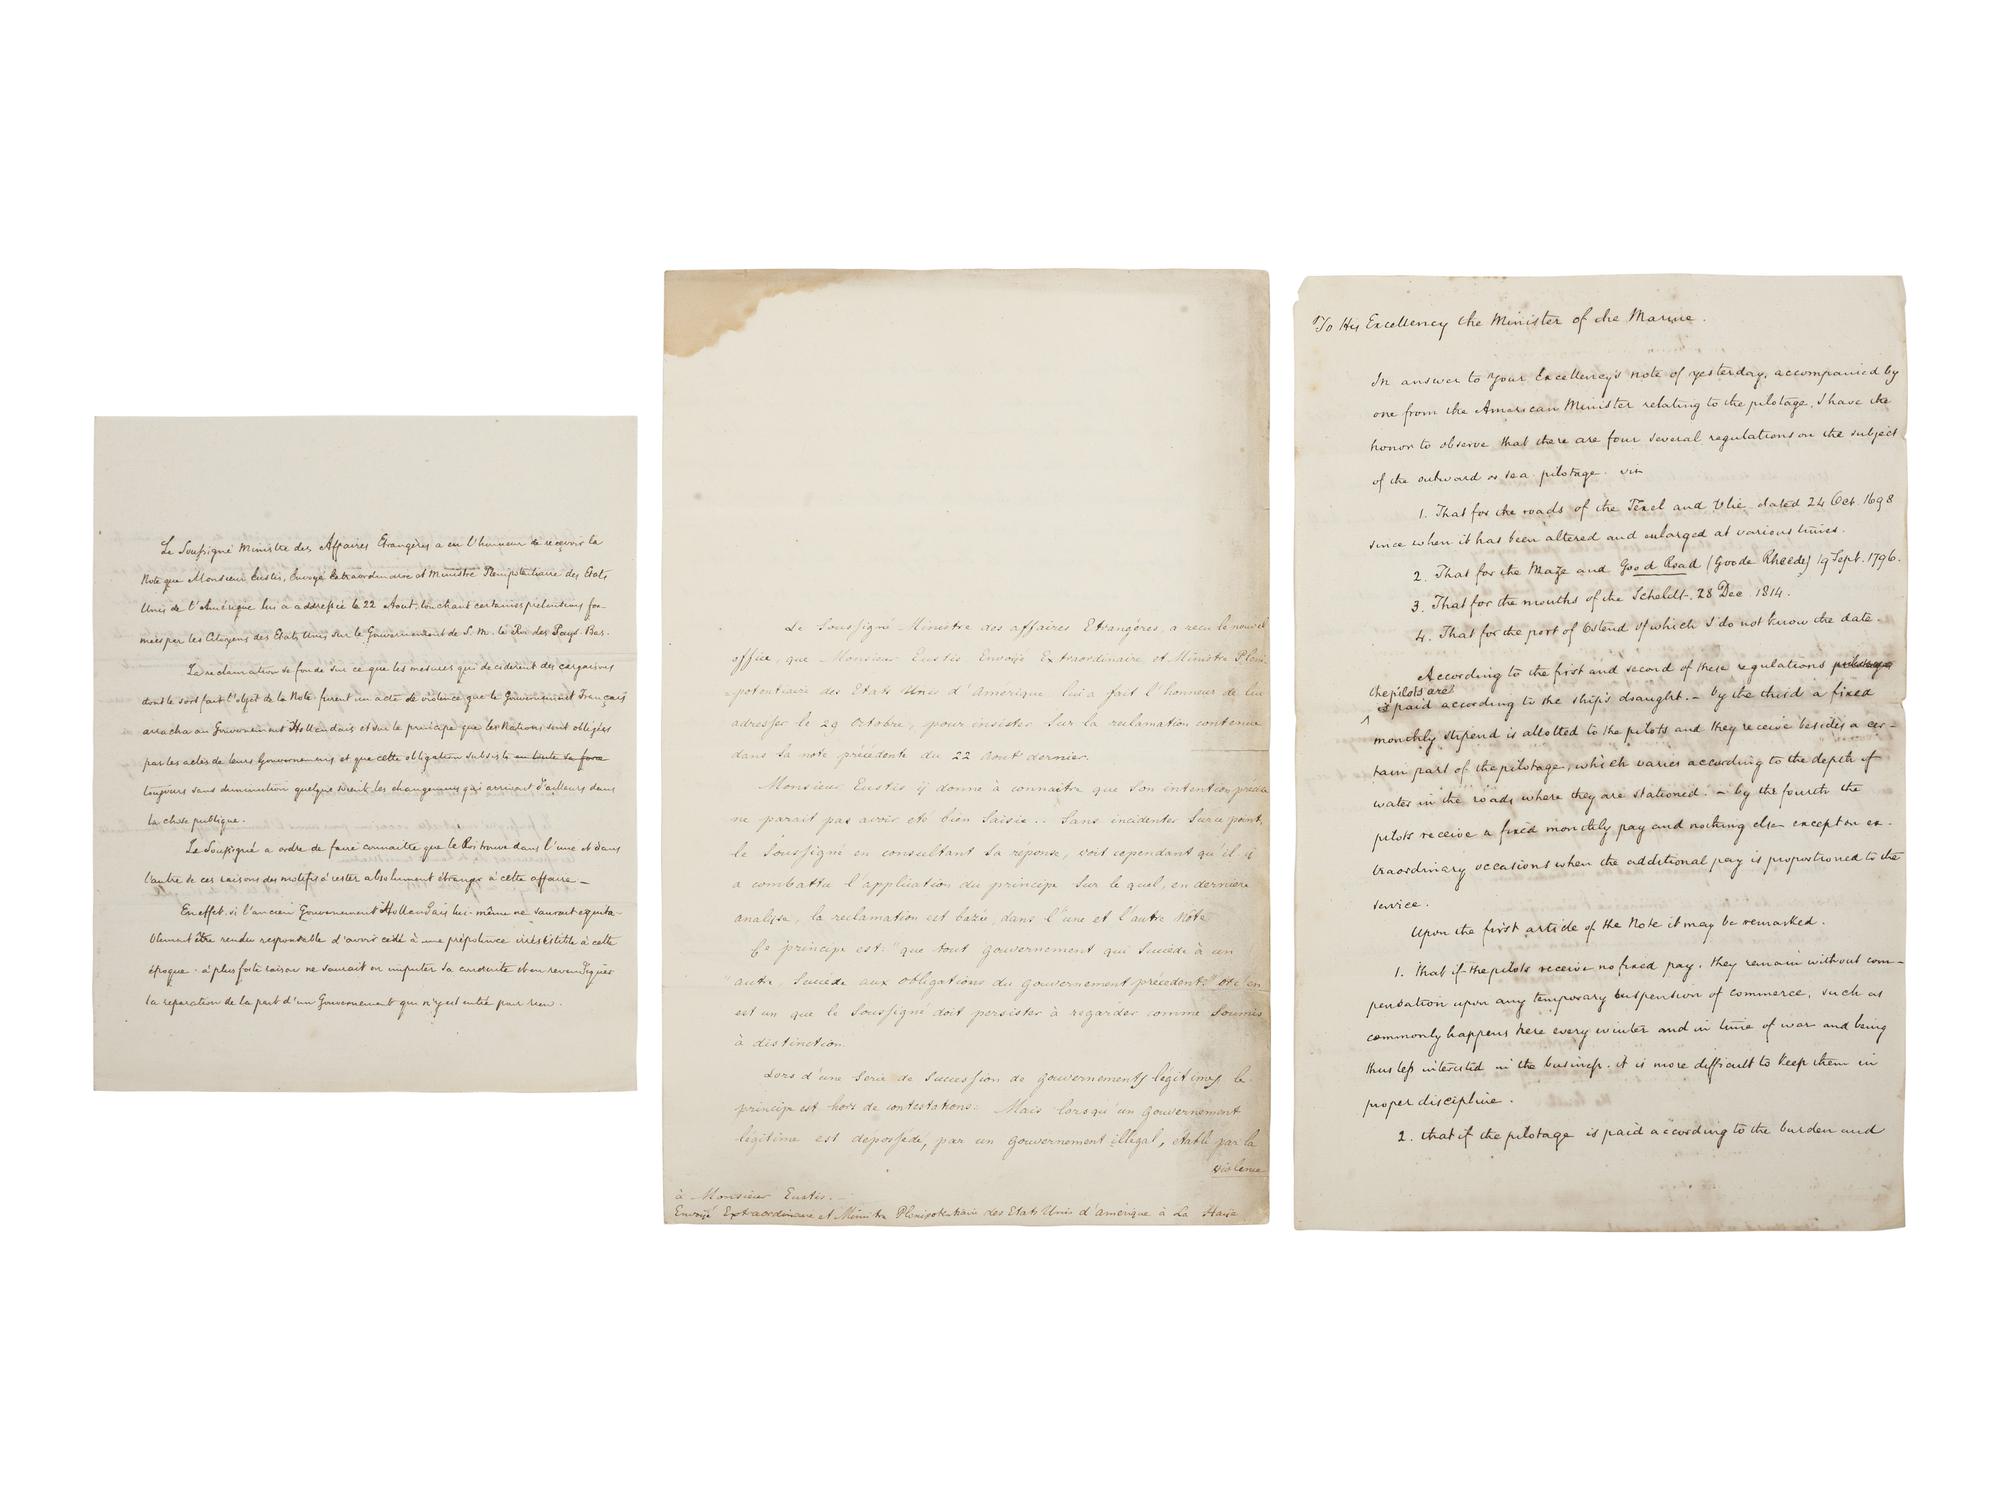 Le Soussigné Ministre des Affaires Etrangères a eu l'honneur de reçevoir la
Note que Monsieur Eustis, Envoyé Extraordinaire et Ministre Plenipotentiaire des Etats
Unis de l'Amérique lui a addressée le 22 Aout, touchant certaines prétentions for-
mées par les Citoyens des Etats Unis sur le Gouvernement de S. M. le Roi des Pays-Bas.
La reclamation se fonde sur ce que les mesures qui deciderent des cargaisons
dont le sort fait l'objet de la Note furent un acte de violence, que le Gouvernement Français
arracha au Gouvernement Hollandais et sur le principe que les Nations sont obligées
par les actes de leurs Gouvernemens et que cette obligation subsiste en toute sa force
toujours sans diminution quelque soient les changemens qui arrivent d'ailleurs dans
la chose publique.
Le Soussigné a ordre de faire connaitre que le Roi trouve dans l'une et dans
l'autre de ces raisons des motifs à rester absolument étranger à cette affaire —
En effet, si l'ancien Gouvernement Hollandais lui-même ne saurait equita-
blement être rendu responsable d'avoir cédé à une prépotence irrésistible à cette
époque - à plus forte raison ne saurait on imputer sa conduite et en revendiquer
la reparation de la part d'un Gouvernement qui n'y est entré pour rien.
Le Soussigné Ministre des affaires Etrangères, a recu le nouvel
office, que Monsieur Eustis Envoyé Extraordinaire et Ministre Pleni-
-potentiaire des Etats Unis d'Amérique lui a fait l'honneur de lui
adresser le 29 Octobre, pour insister sur la reclamation contenue
dans sa note précédente du 22 Aout dernier.
Monsieur Eustis y donne à connaitre que son intention précise
ne parait pas avoir été bien saisie.. Sans incidenter sur ce point,
le Soussigné en consultant sa réponse, voit cependant qu'il y
a combattu l'application du principe sur le quel, en derniere
analyse, la reclamation est bazée, dans l'une et l'autre Note
Ce principe est: "que tout gouvernement qui succède à un
" autre, succède aux obligations du gouvernement précédent"
est un que le Soussigné doit persister à regarder comme soumis
à distinction.
Lors d'une serie de succession de gouvernements légitimes le
principe est hors de contestations: Mais lorsqu'un gouvernement
légitime est dépossédé, par un gouvernement illégal, établi par la
violence
à Monsieur Eustis. —
Envoyé Extraordinaire et Ministre Plenipotentiaire des Etats Unis d'Amérique à La Haye
To His Excellency the Minister of the Marine.
In answer to Your Excellency's note of yesterday, accompanied by
one from the American Minister relating to the pilotage, I have the
honor to observe that there are four several regulations on the subject
of the outward or sea pilotage. viz
1. That for the roads of the Texel and Vlie dated 24 Oct. 1698
since when it has been altered and enlarged at various times.
2. That for the Maze and Good Road (Goode Rheede) 19 Sept. 1796.
3. That for the mouths of the Scheldt. 28 Dec. 1814.
4. That for the port of Ostend of which I do not know the date.
According to the first and second of these regulations pilotage
the pilots are
is paid according to the ship's draught. — by the third a fixed
monthly stipend is allotted to the pilots and they receive besides a cer-
tain part of the pilotage, which varies according to the depth of
water in the roads where they are stationed. — by the fourth the
pilots receive a fixed monthly pay and nothing else except on ex-
traordinary occasions when the additional pay is proportioned to the
service.
Upon the first article of the Note it may be remarked.
1. That if the pilots receive no fixed pay, they remain without com-
pensation upon any temporary suspension of commerce, such as
commonly happens here every winter and in time of war and being
thus less interested in the business, it is more difficult to keep them in
proper discipline.
2. that if the pilotage is paid according to the burden and